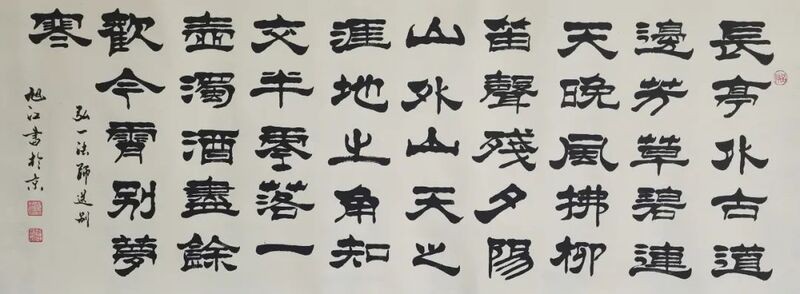 長亭外古道
邊芳草碧連
天晚風拂柳
笛聲殘夕陽
山外山天之
涯地之角知
交半零落一
壺濁酒盡餘
歡今霄别夢
寒
弘一法師送别
旭江書於京